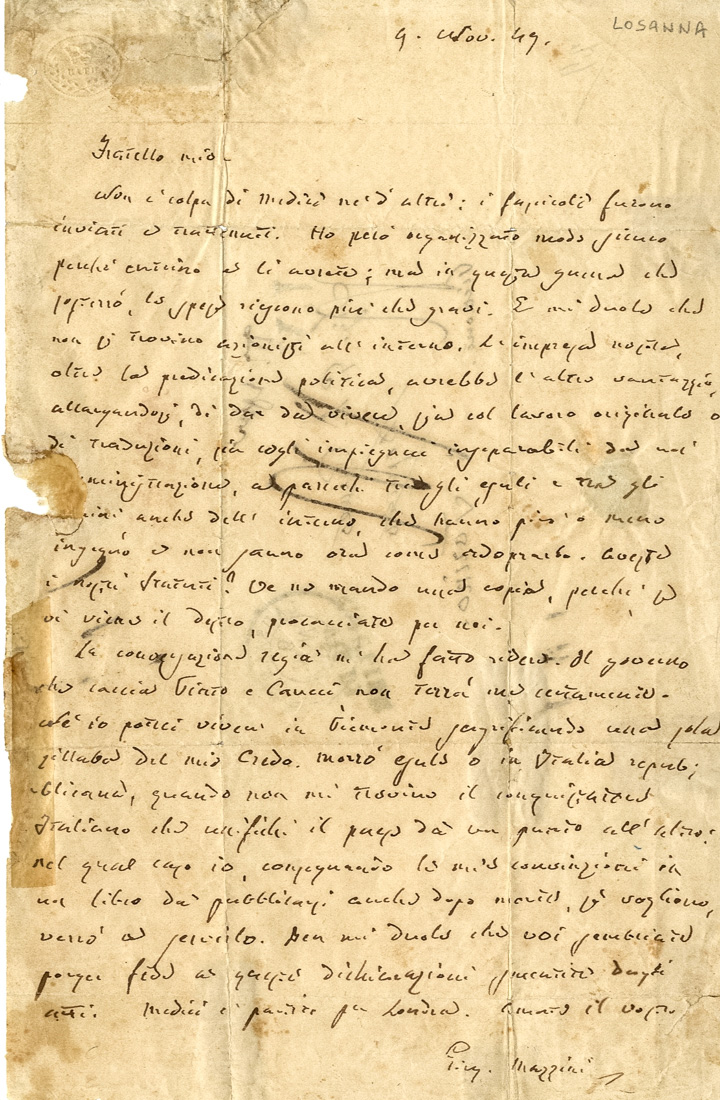 LOSANNA
9. Nov. 49.
Fratello mio
Non è colpa di Medici nè d'altri: i fascicoli furono
inviati e trattenuti. Ho però organizzato modo sicuro
perchè entrino e li avrete; ma in questa guerra che
sosterrò, le spese riescono più che gravi. E mi duole che
non si trovino azionisti all'interno. L'impresa nostra,
oltre la predicazione politica, avrebbe l'altro vantaggio,
allargandosi, di dar da vivere, sia col lavoro originale o
di traduzioni, sia cogli impieghi inseparabili da noi
amministrazione, a parecchi tra gli esuli e tra gli
uomini anche dell'interno, che hanno più o meno
ingegno e non sanno ora come adoprarlo. Aveste
i nostri Statuti? Ve ne mando una copia, perchè se
vi viene il destro, procacciate per noi.
La concessione regia mi ha fatto ridere. Il governo
che caccia Cannonieri non terrà me certamente.
Nè io potrei vivere in Piemonte sagrificando una sola
sillaba del mio Credo. Morrò esule o in Italia repub;
blicana, quando non mi trovino il conquistatore
Italiano che unifichi il paese da un punto all'altro:
nel qual caso io, consegnando le mie convinzioni in
un libro da pubblicarsi anche dopo morte, se vogliono,
verrò a servirlo. Ben mi duole che voi sembriate
porger fede a queste dichiarazioni smentite dagli
atti. Medici è partito per Londra. Amate il vostro
Gius. Mazzini